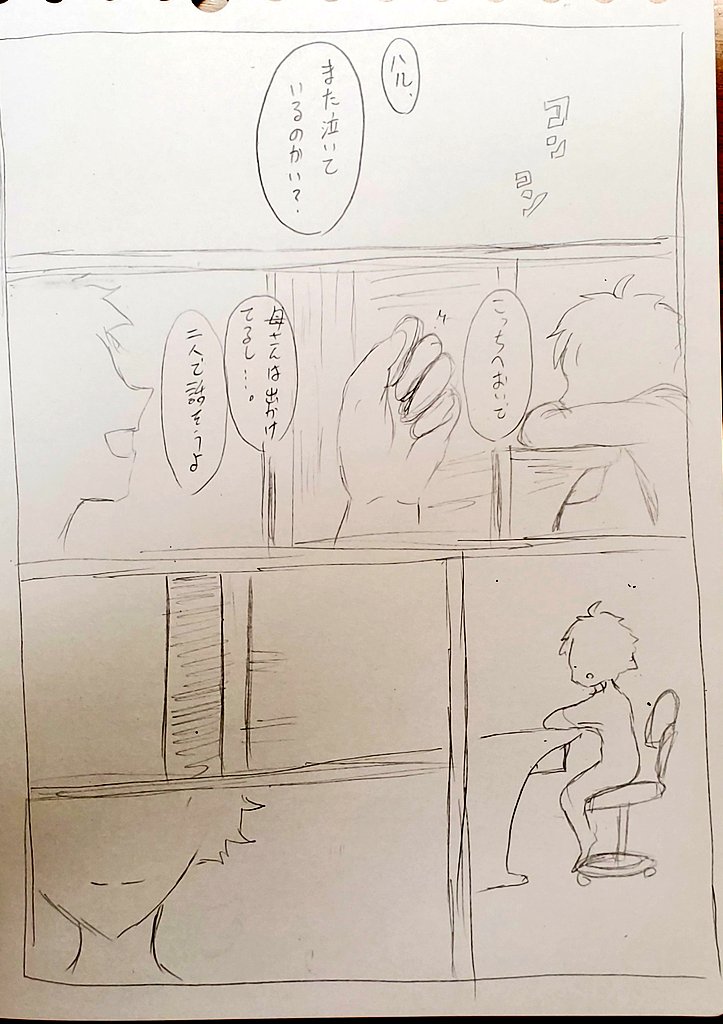 コン
コン
ハル、
また泣いて
いるのかい?
こっちへおいで
母さんは出かけ
てるし…。
二人で話そうよ